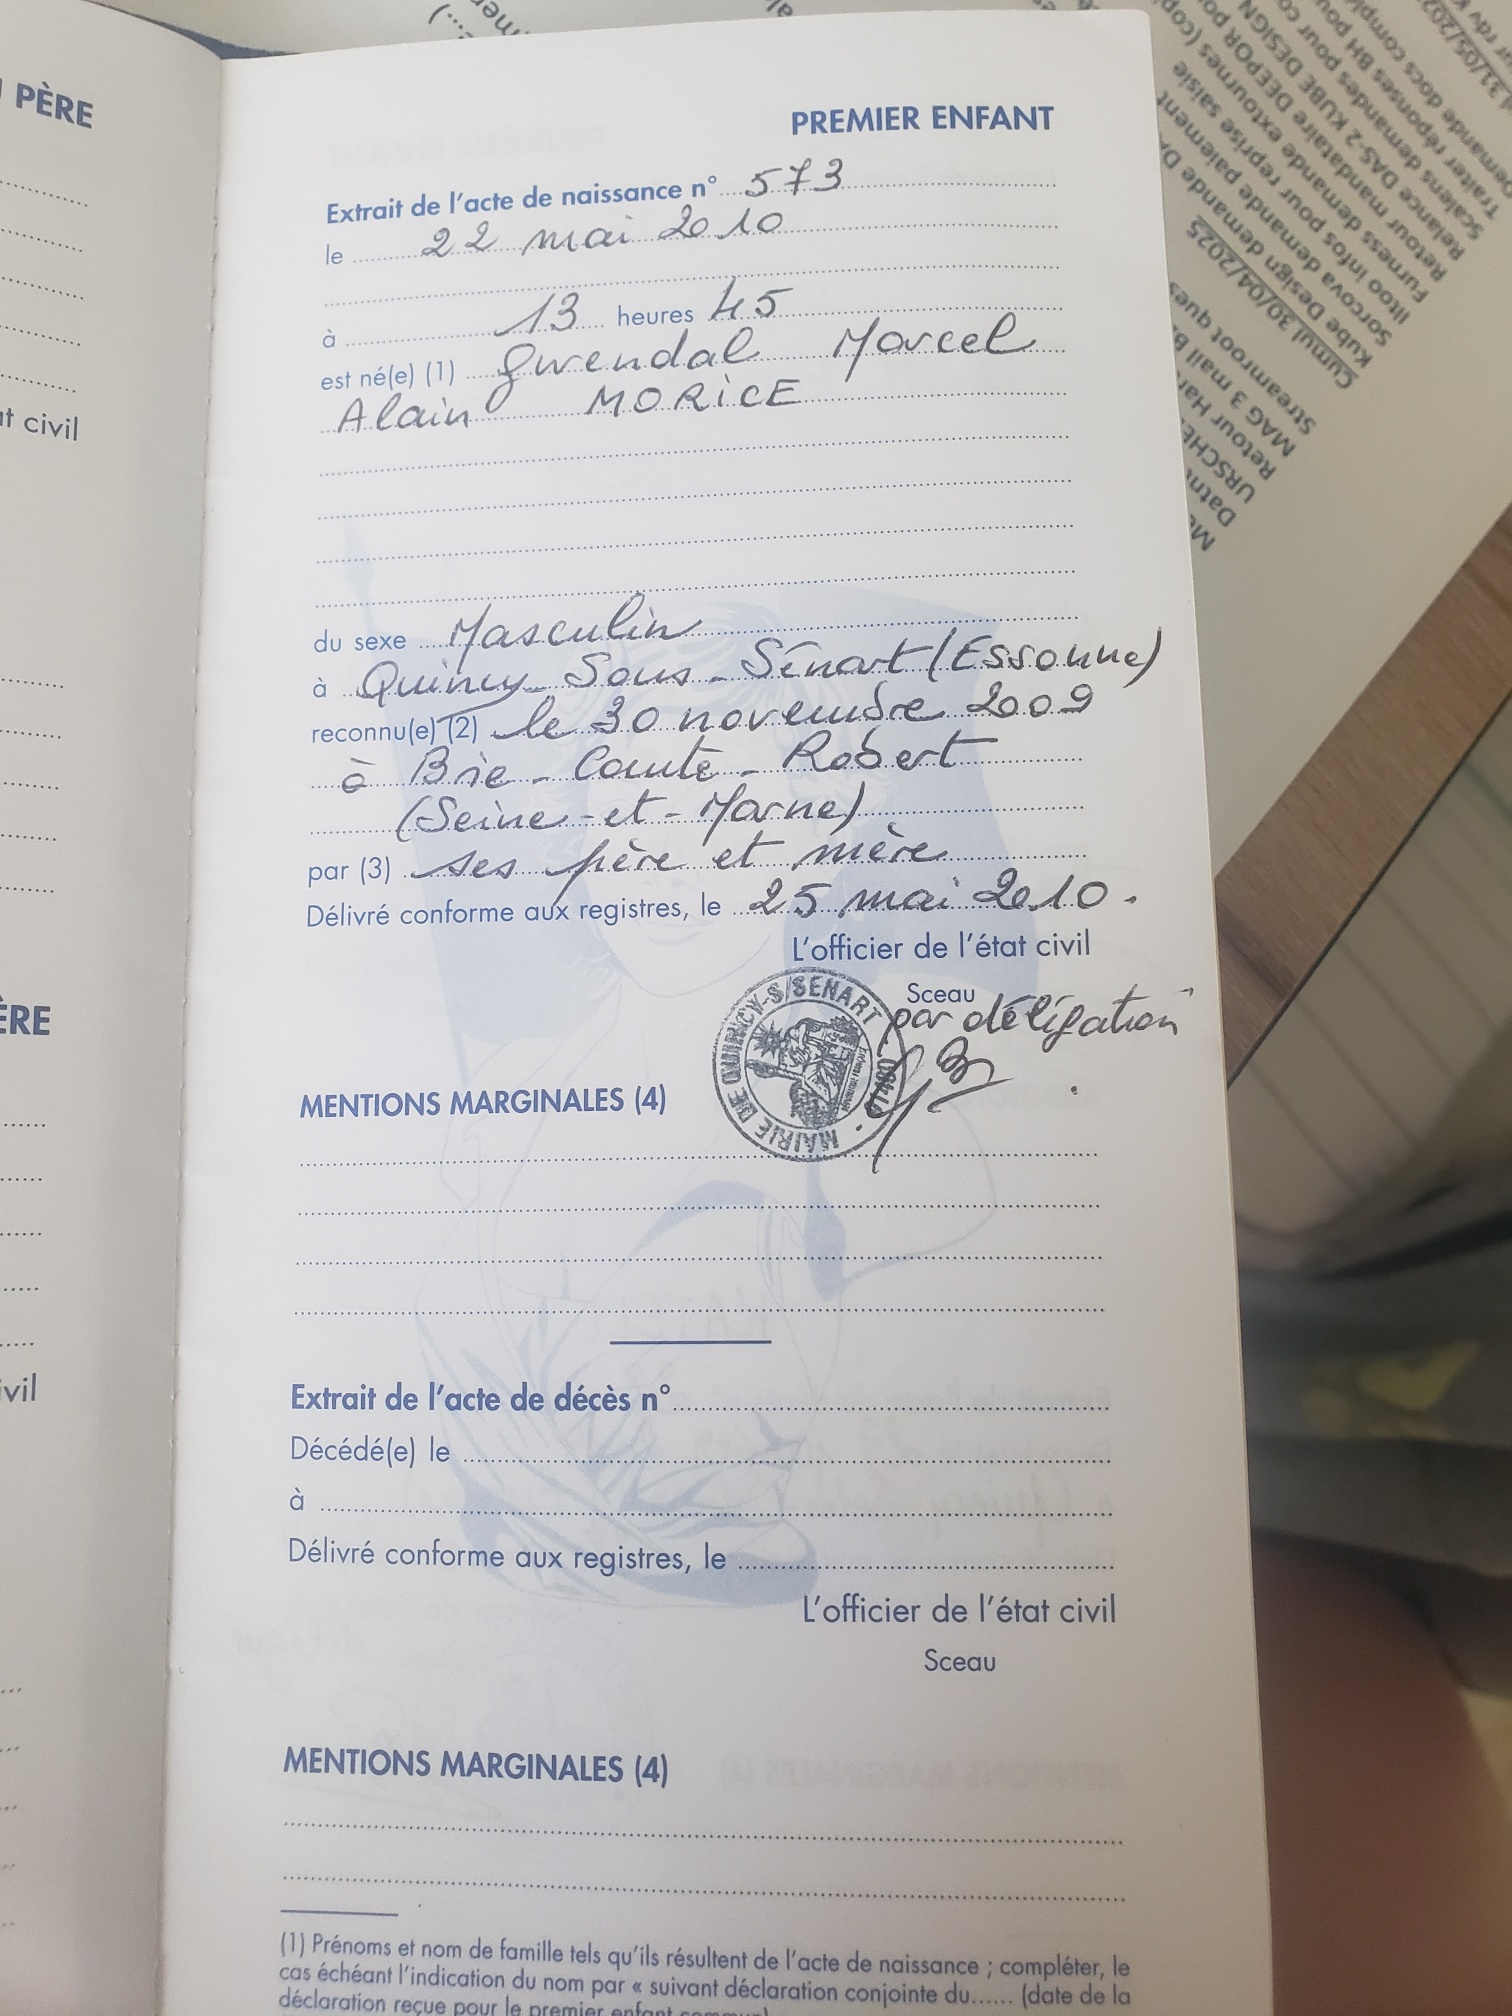 PÈRE
at civil
ÈRE
ivil
PREMIER ENFANT
Extrait de l'acte de naissance n° 573
le 22 mai 2010
à 13 heures 45
est né(e) (1) Gwendal Marcel
Alain MORICE
du sexe Masculin
à Quincy-Sous-Sénart (Essonne)
reconnu(e) (2) le 30 novembre 2009
à Brie-Comte-Robert
(Seine-et-Marne)
par (3) ses père et mère
Délivré conforme aux registres, le 25 mai 2010.
L'officier de l'état civil
Sceau
par délégation
MAIRIE DE QUINCY-S/SENART
MENTIONS MARGINALES (4)
Extrait de l'acte de décès n°
Décédé(e) le
à
Délivré conforme aux registres, le
L'officier de l'état civil
Sceau
MENTIONS MARGINALES (4)
(1) Prénoms et nom de famille tels qu'ils résultent de l'acte de naissance ; compléter, le
cas échéant l'indication du nom par « suivant déclaration conjointe du...... (date de la
déclaration reçue pour le premier enfant
31/05/202
Traiter réponses BH
Scalens demandes
Relance DAS-2 KUBE DESIGN
Retour mandataire DEEPOR
Furness demande extournes (cop
Iltoo infos pour reprise saisie
Sorcova demande paiement
Kube Design demande
Cumul 30/04/2025
Streamroot ques
MAG 3 mail B
Retour Har
URSCHE